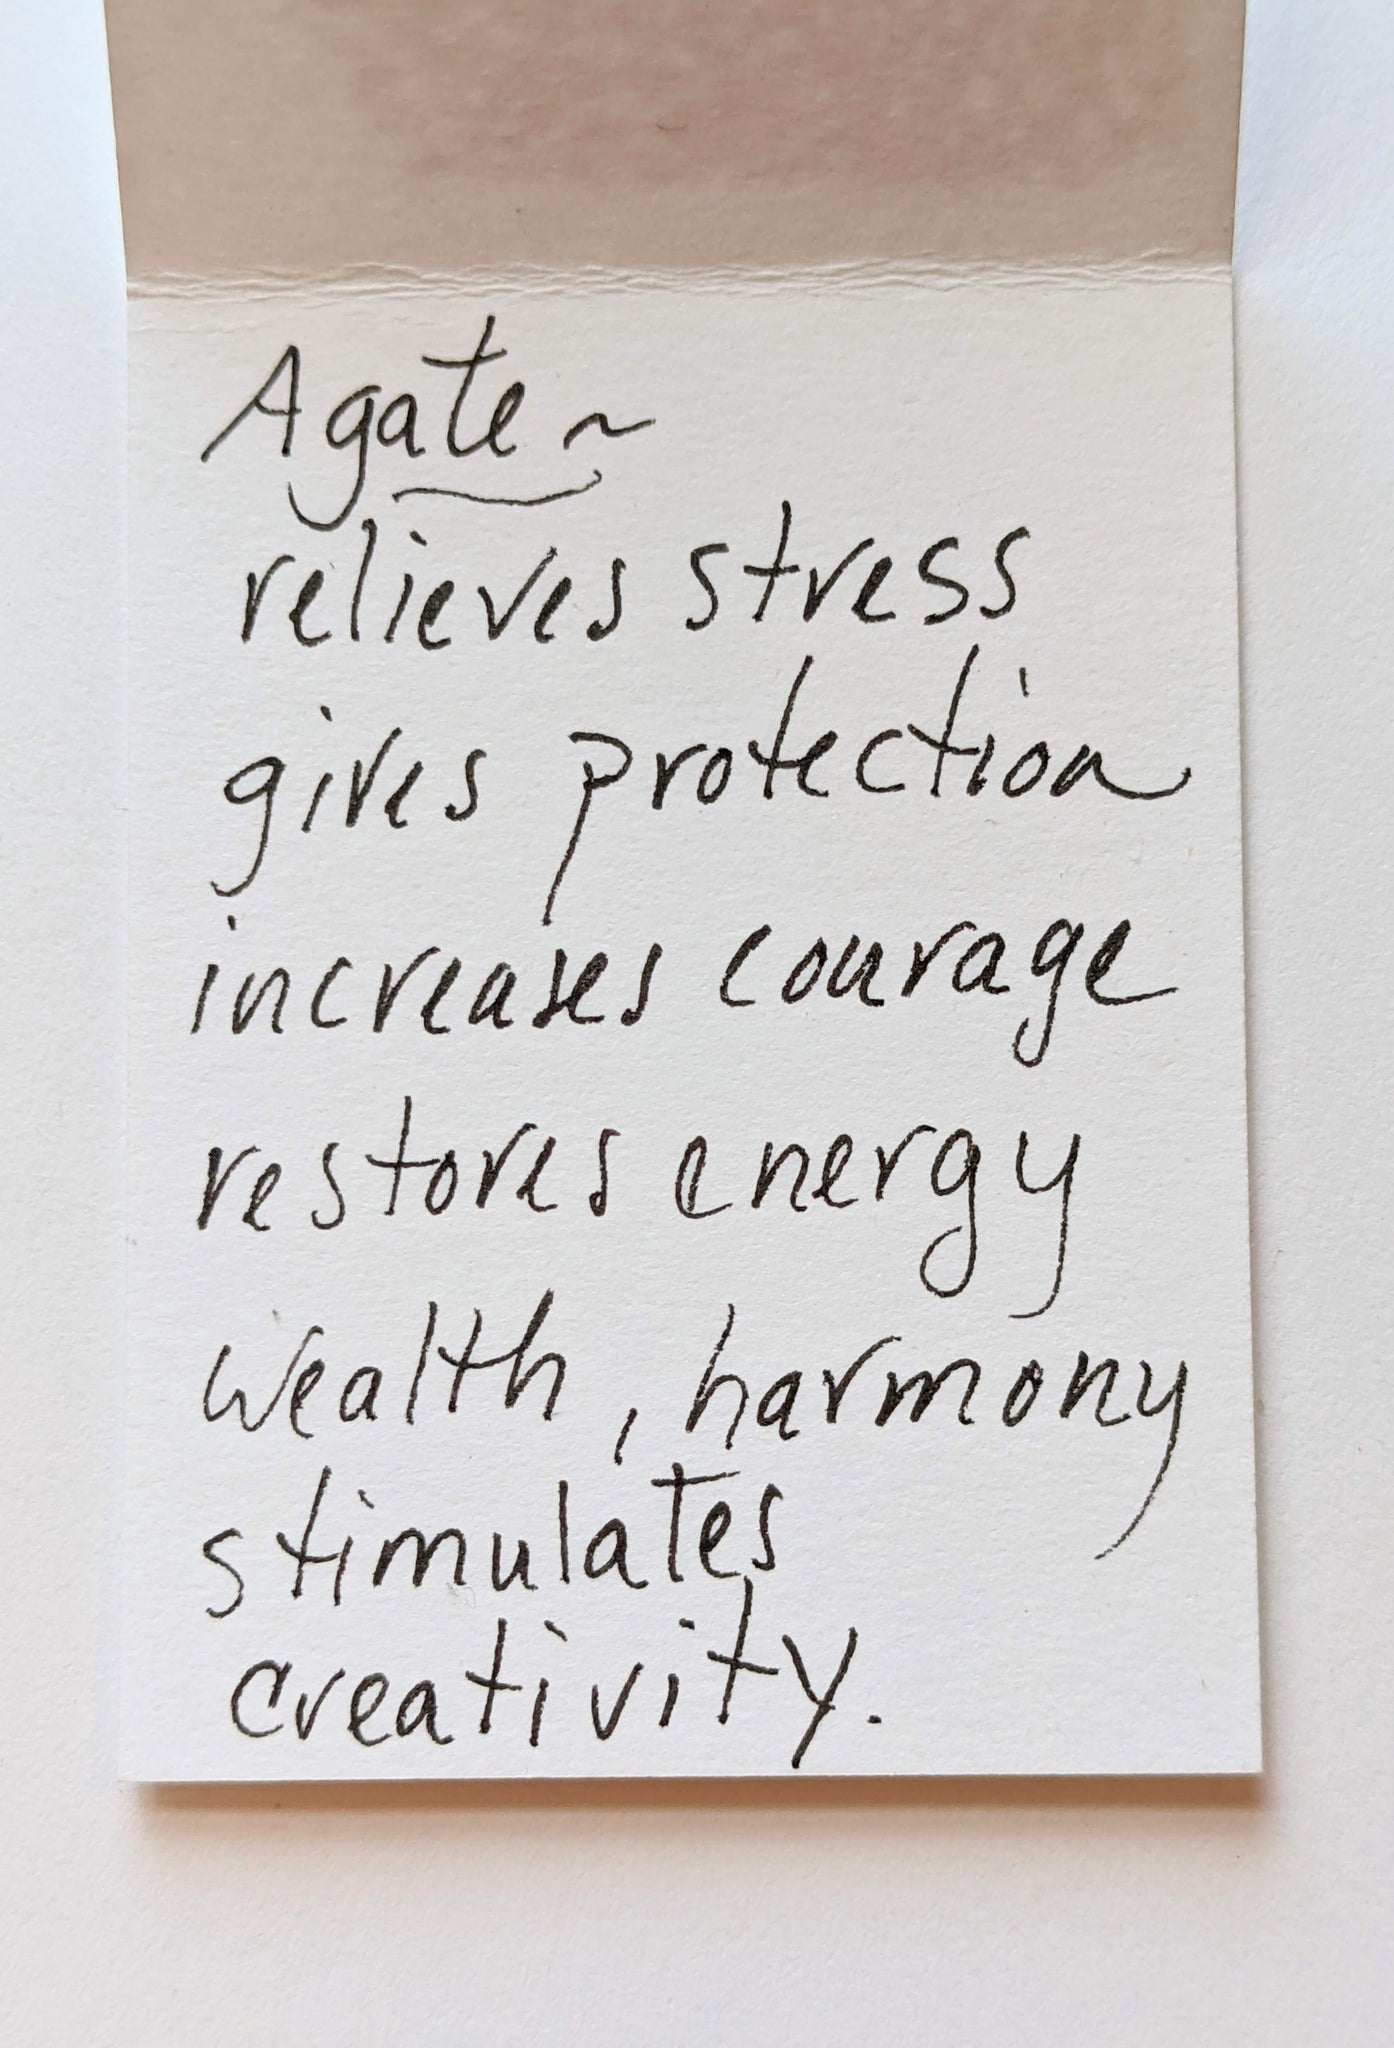 Agate ~
relieves stress
gives protection
increases courage
restores energy
wealth, harmony
stimulates
creativity.